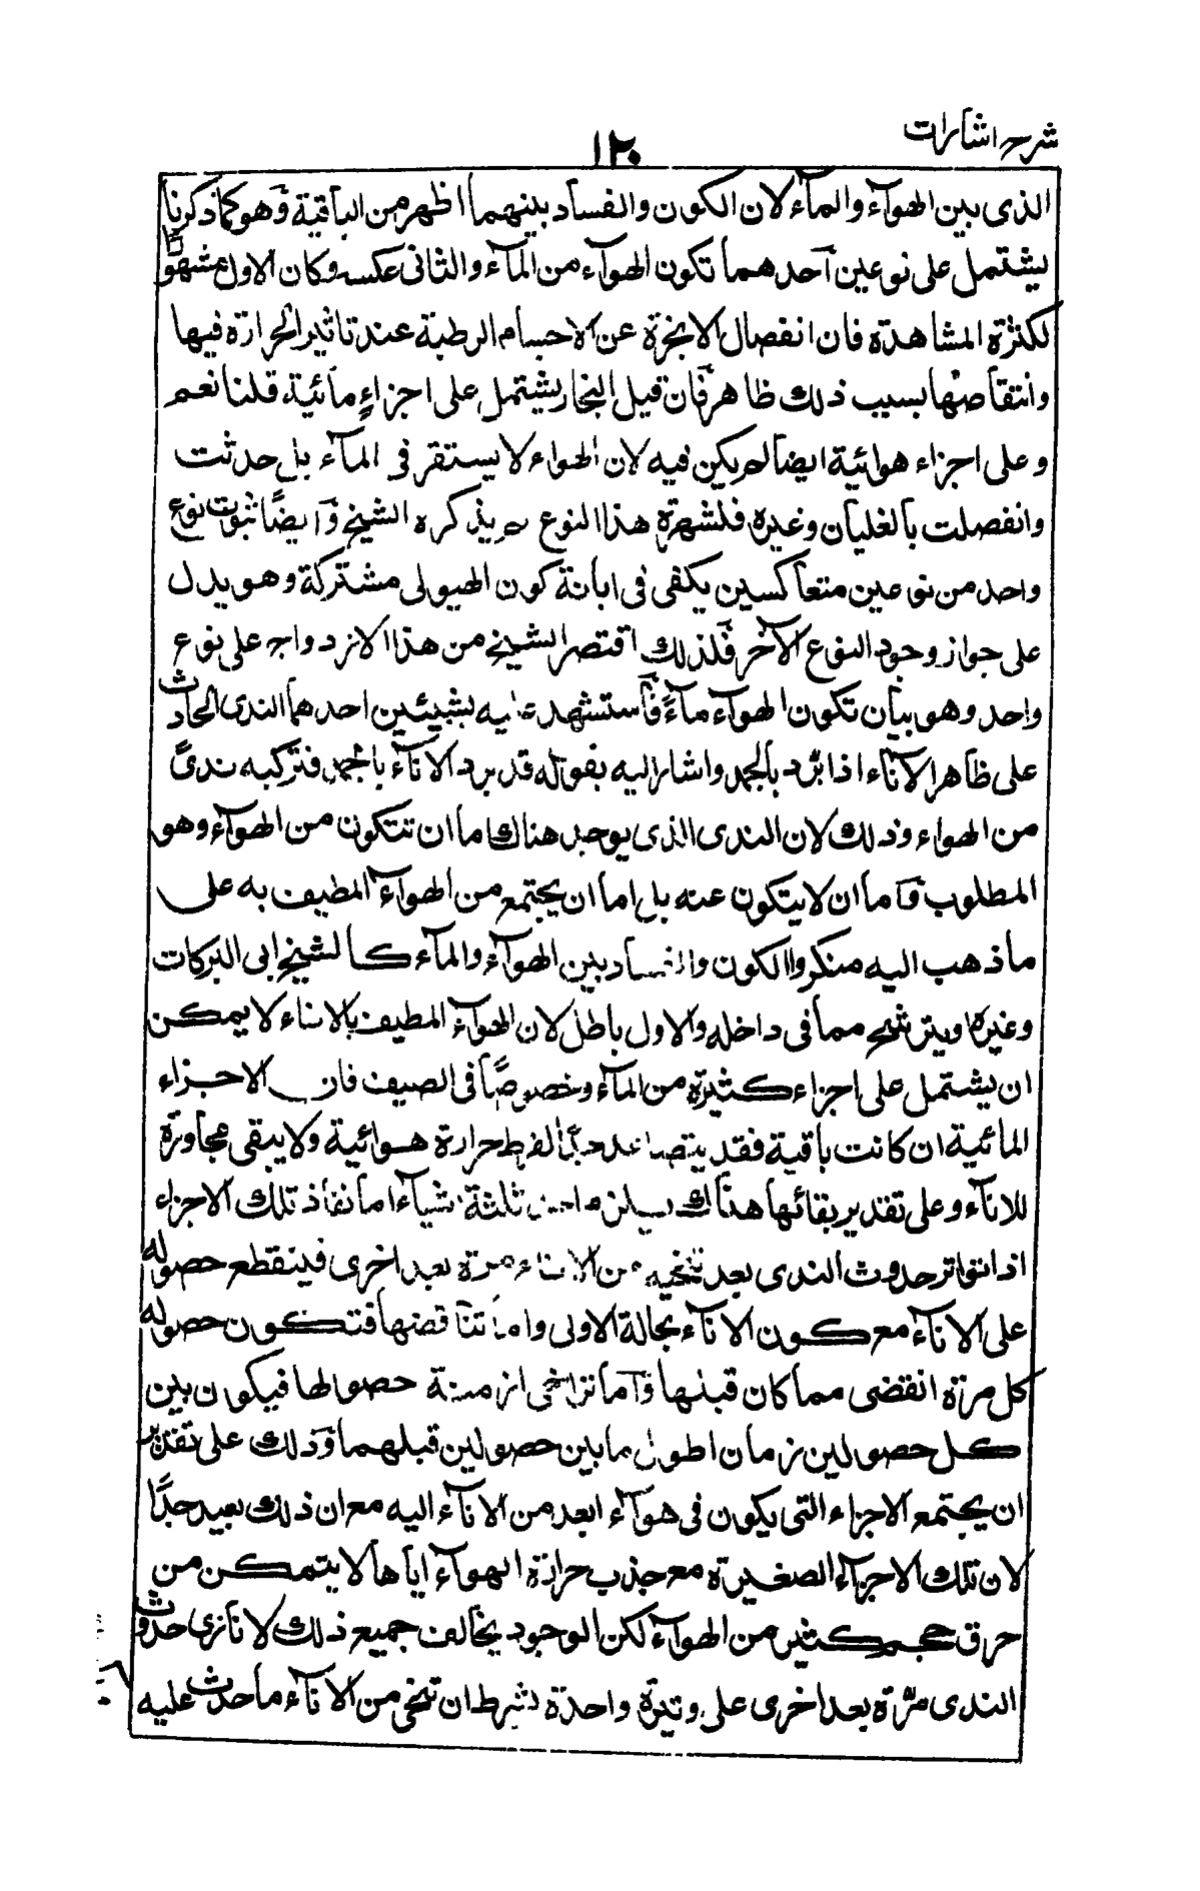 شرح اشارات
١٢٠
الذى بين الهوآء والمآء لان الكون والفساد بينهما اظهر من الباقية وَهو كما ذكرنا
يشتمل على نوعين آحدهما تكون الهوآء من المآء والثانى عكسه وكان الاول مشهورا
لكثرة المشاهدة فان انفصال الابخرة عن الاجسام الرطبة عند تاثير الحرارة فيها
وانتقاصها بسبب ذلك ظاهر فَان قيل البخار يشتمل على اجزاءٍ مائية، قلنا نعم
وعلى اجزاء هوائية ايضا لم يكن فيه لان الهواء لا يستقر فى المآء بل حدثت
وانفصلت بالغليان وغيره فلشهرة هذا النوع لم يذكره الشيخ وَايضًا ثبوت نوع
واحد من نوعين متعاكسين يكفى فى ابانة كون الهيولى مشتركة وهو يدل
على جواز وجود النوع الآخر فَلذلك اقتصر الشيخ من هذا الازدواج على نوع
واحد وهو بيان تكون الهوآء مآءً فَاستشهد عليه بشيئين احدهما الندى الحادث
على ظاهر الاناء اذا برّد بالجمد واشار اليه بقوله قد يبرد الانآء بالجمد فتركبه ندىً
من الهواء وذلك لان الندى الذى يوجد هناك اما ان تتكون من الهوآء وهو
المطلوب وَاما ان لا يتكون عنه بل اما ان يجتمع من الهوآء المطيف به على
ما ذهب اليه منكروا الكون والفساد بين الهوآء والمآء كالشيخ ابى البركات
وغيره او يترشح مما فى داخله والاول باطل لان الهوآء المطيف بالاناء لا يمكن
ان يشتمل على اجزاء كثيرة من المآء وخصوصًا فى الصيف فان الاجزاء
المائية ان كانت باقية فقد يتصاعد جدًا لفرط حرارة هوائية ولا يبقى مجاورة
للانآء وعلى تقدير بقائها هناك يلزم احد ثلثة اشيآء اما نفاذ تلك الاجزاء
اذا تواتر حدوث الندى بعد تنحيه من الاناء مرة بعد اخرى فينقطع حصوله
على الانآء مع كون الانآء بحالة الاولى واما تناقصها فتكون حصوله
كل مرة انقضى مما كان قبلها وَاما تراخى ازمنة حصولها فيكون بين
كل حصولين زمان اطول ما بين حصولين قبلهما وَذلك على تقدير
ان يجتمع الاجزاء التى يكون فى هوآء ابعد من الانآء اليه مع ان ذلك بعيد جدًا
لان تلك الاجزآء الصغيرة مع جذب حرارة الهوآء اياها لا يتمكن من
حرق حجم كثير من الهوآء لكن الوجود يخالف جميع ذلك لانا نرى حدوث
الندى مرّة بعد اخرى على وتيرة واحدة بشرط ان تنحى من الانآء ما حدث عليه